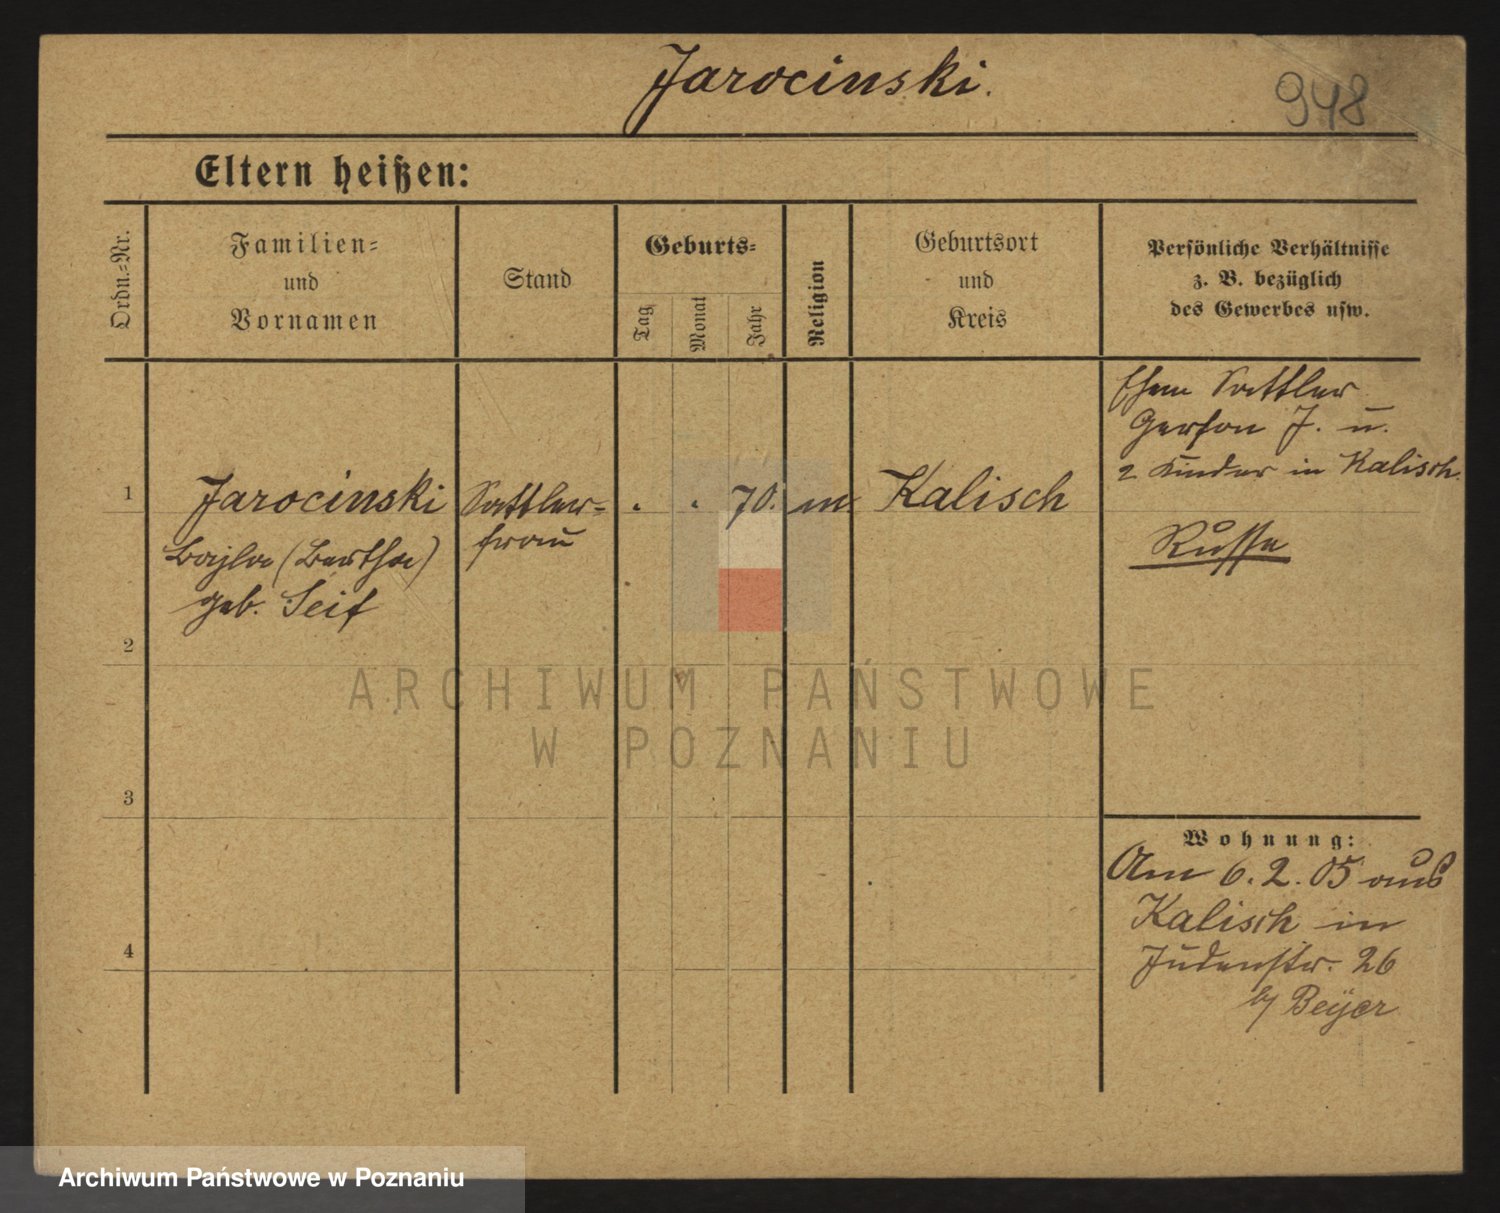 Jarocinski.
948
Eltern heißen:
Ordn.-Nr.
Familien-
und
Vornamen
Stand
Geburts-
Tag
Monat
Jahr
Religion
Geburtsort
und
Kreis
Persönliche Verhältnisse
z. B. bezüglich
des Gewerbes usw.
Ehem Sattler
Gerson J. u.
2 Kinder in Kalisch.
1
Jarocinski
Sattler-
. . 70. m.
Kalisch
Bajla (Bertha)
frau
Russe
geb. Seif
2
ARCHIWUM PAŃSTWOWE
W POZNANIU
3
Wohnung:
Am 6.2.05 aus
Kalisch in
4
Judenstr. 26
by Beyer
Archiwum Państwowe w Poznaniu